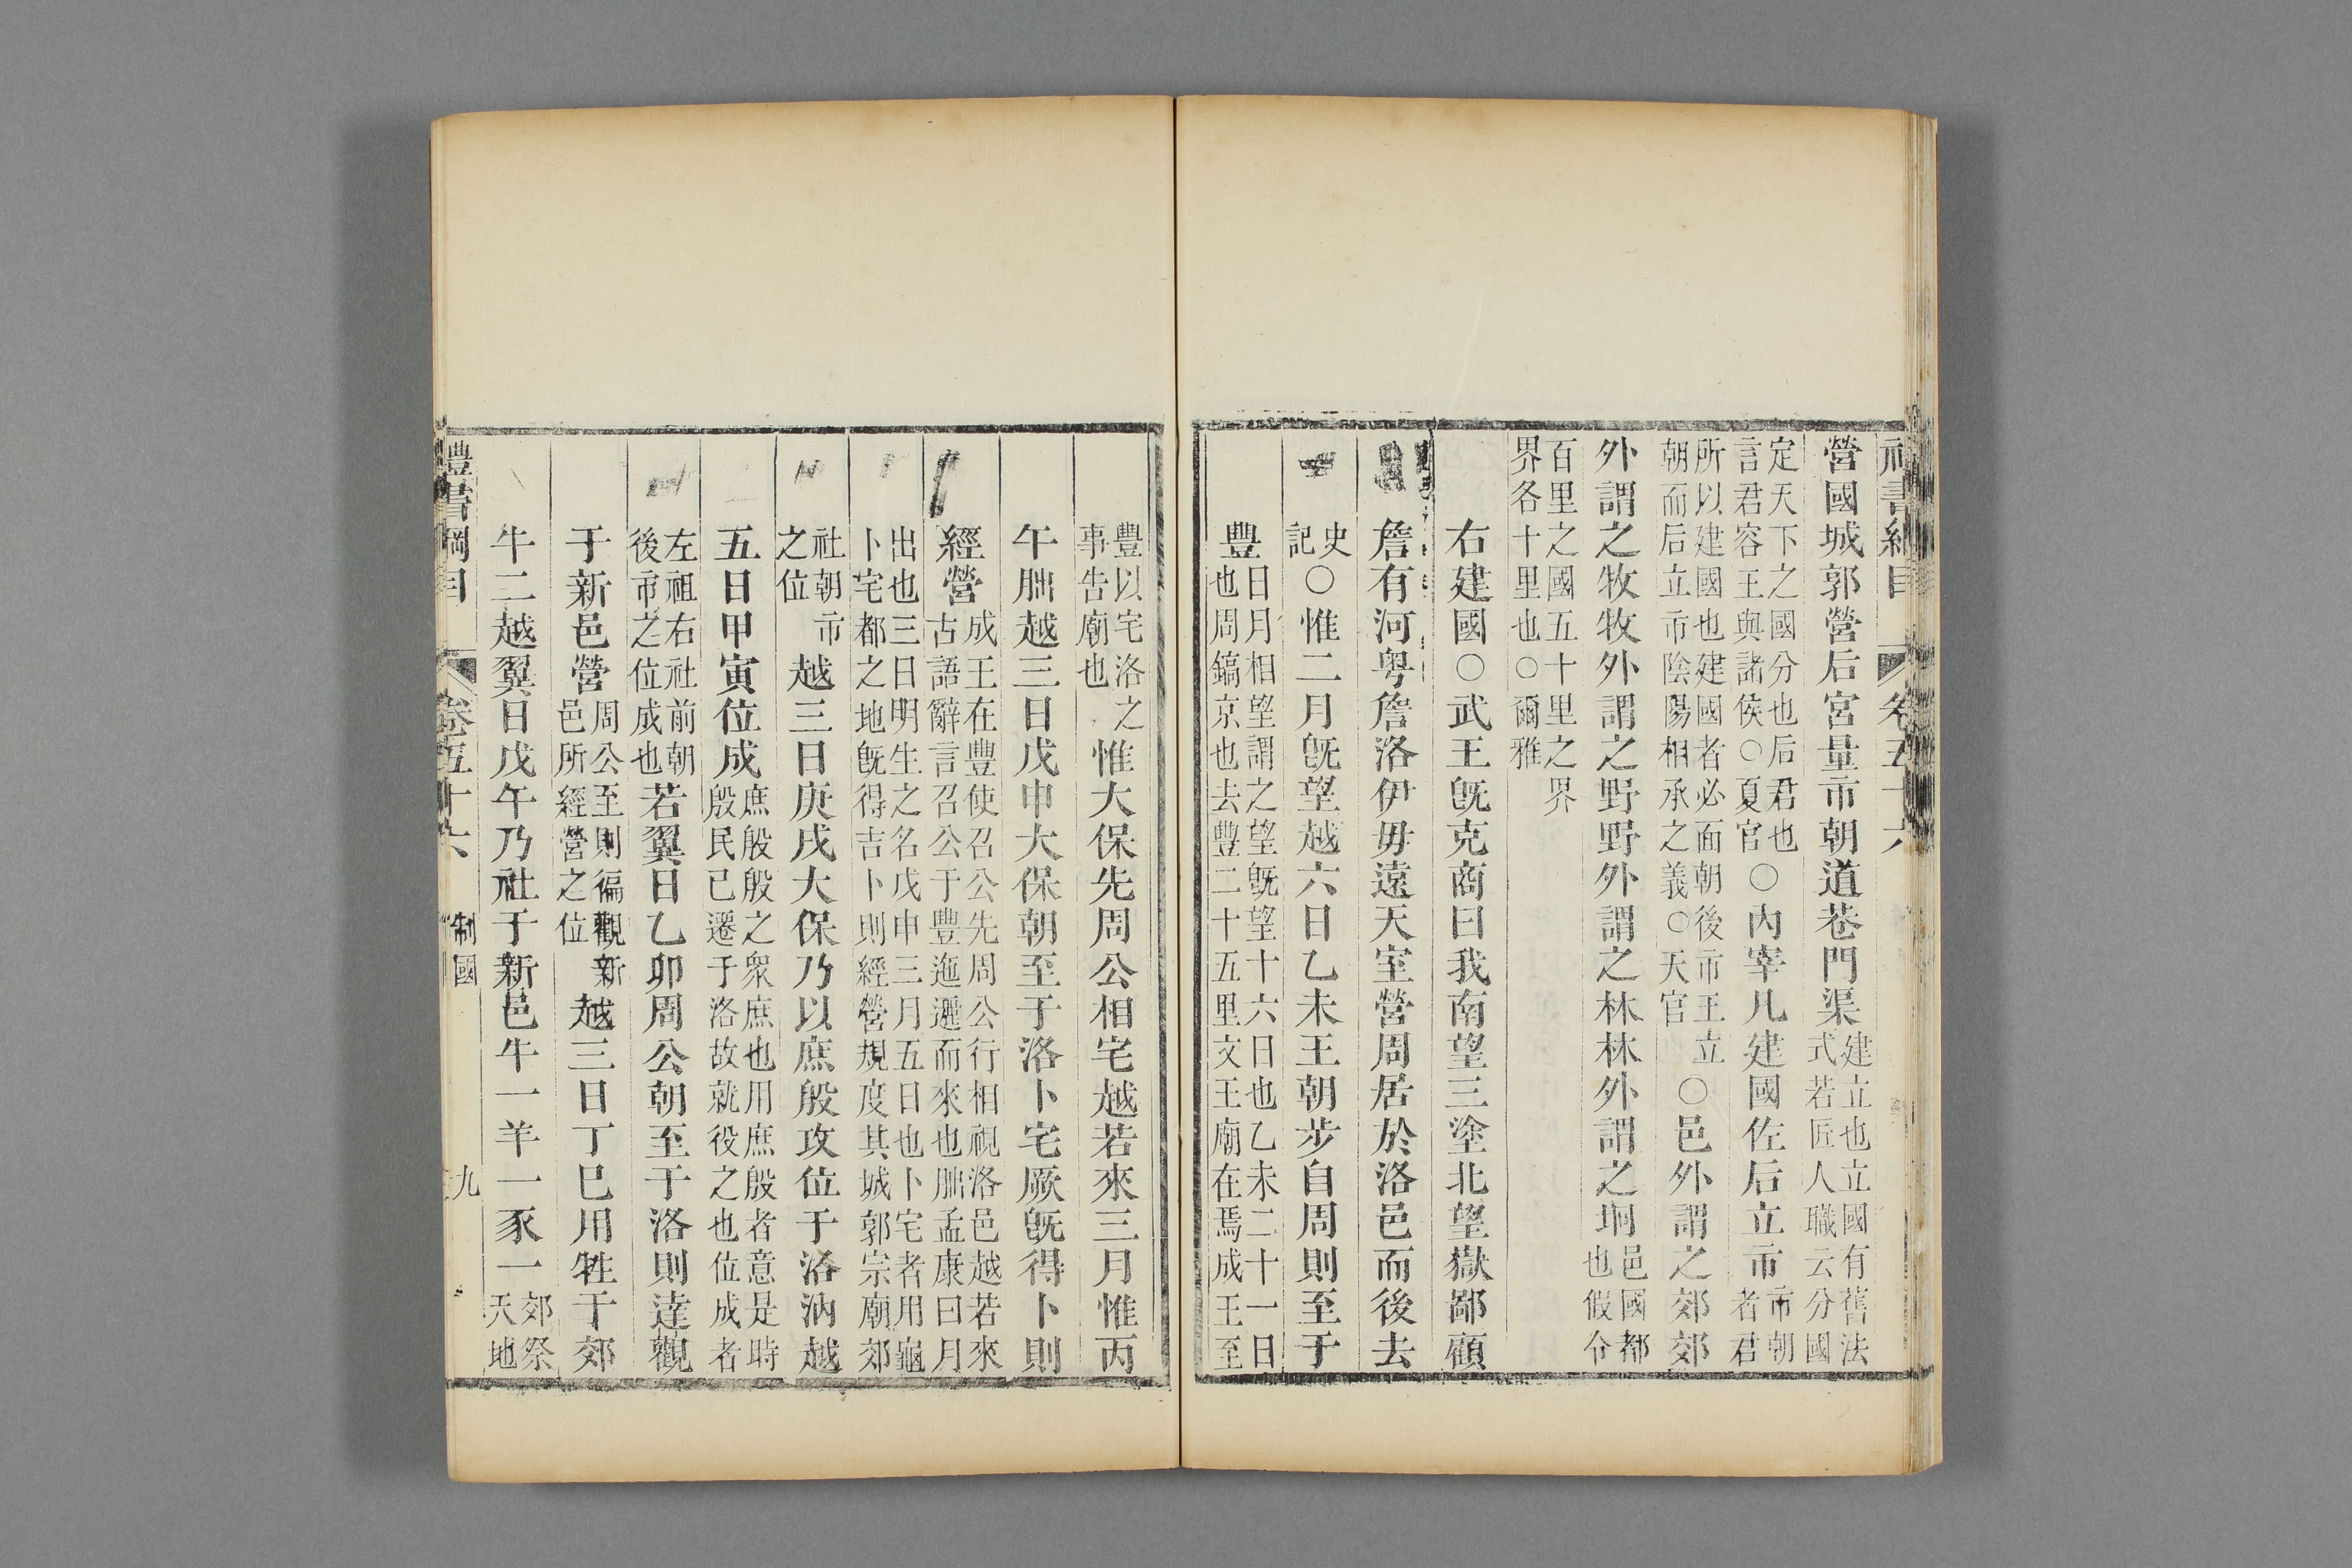 禮書綱目 卷五十六
營國城郭營后宮量市朝道巷門渠建立也立國有舊法式若匠人職云分國
定天下之國分也后君也言君容王與諸侯○夏官○內宰凡建國佐后立市市朝者君
所以建國也建國者必面朝後市王立朝而后立市陰陽相承之義○天官○邑外謂之郊郊
外謂之牧牧外謂之野野外謂之林林外謂之坰邑國都也假令
百里之國五十里之界界各十里也○爾雅
右建國○武王旣克商曰我南望三塗北望嶽鄙顧
詹有河粤詹洛伊毋遠天室營周居於洛邑而後去
史記○惟二月旣望越六日乙未王朝步自周則至于
豐日月相望謂之望旣望十六日也乙未二十一日也周鎬京也去豐二十五里文王廟在焉成王至
豐以宅洛之事告廟也惟大保先周公相宅越若來三月惟丙
午朏越三日戊申大保朝至于洛卜宅厥旣得卜則
經營成王在豐使召公先周公行相視洛邑越若來古語辭言召公于豐迤邐而來也朏孟康曰月
出也三日明生之名戊申三月五日也卜宅者用龜卜宅都之地旣得吉卜則經營規度其城郭宗廟郊
社朝市之位越三日庚戌大保乃以庶殷攻位于洛汭越
五日甲寅位成庶殷殷之衆庶也用庶殷者意是時殷民已遷于洛故就役之也位成者
左祖右社前朝後市之位成也若翼日乙卯周公朝至于洛則達觀
于新邑營周公至則徧觀新邑所經營之位越三日丁巳用牲于郊
牛二越翼日戊午乃社于新邑牛一羊一豕一郊祭天地
禮書綱目 卷五十六 制國 九